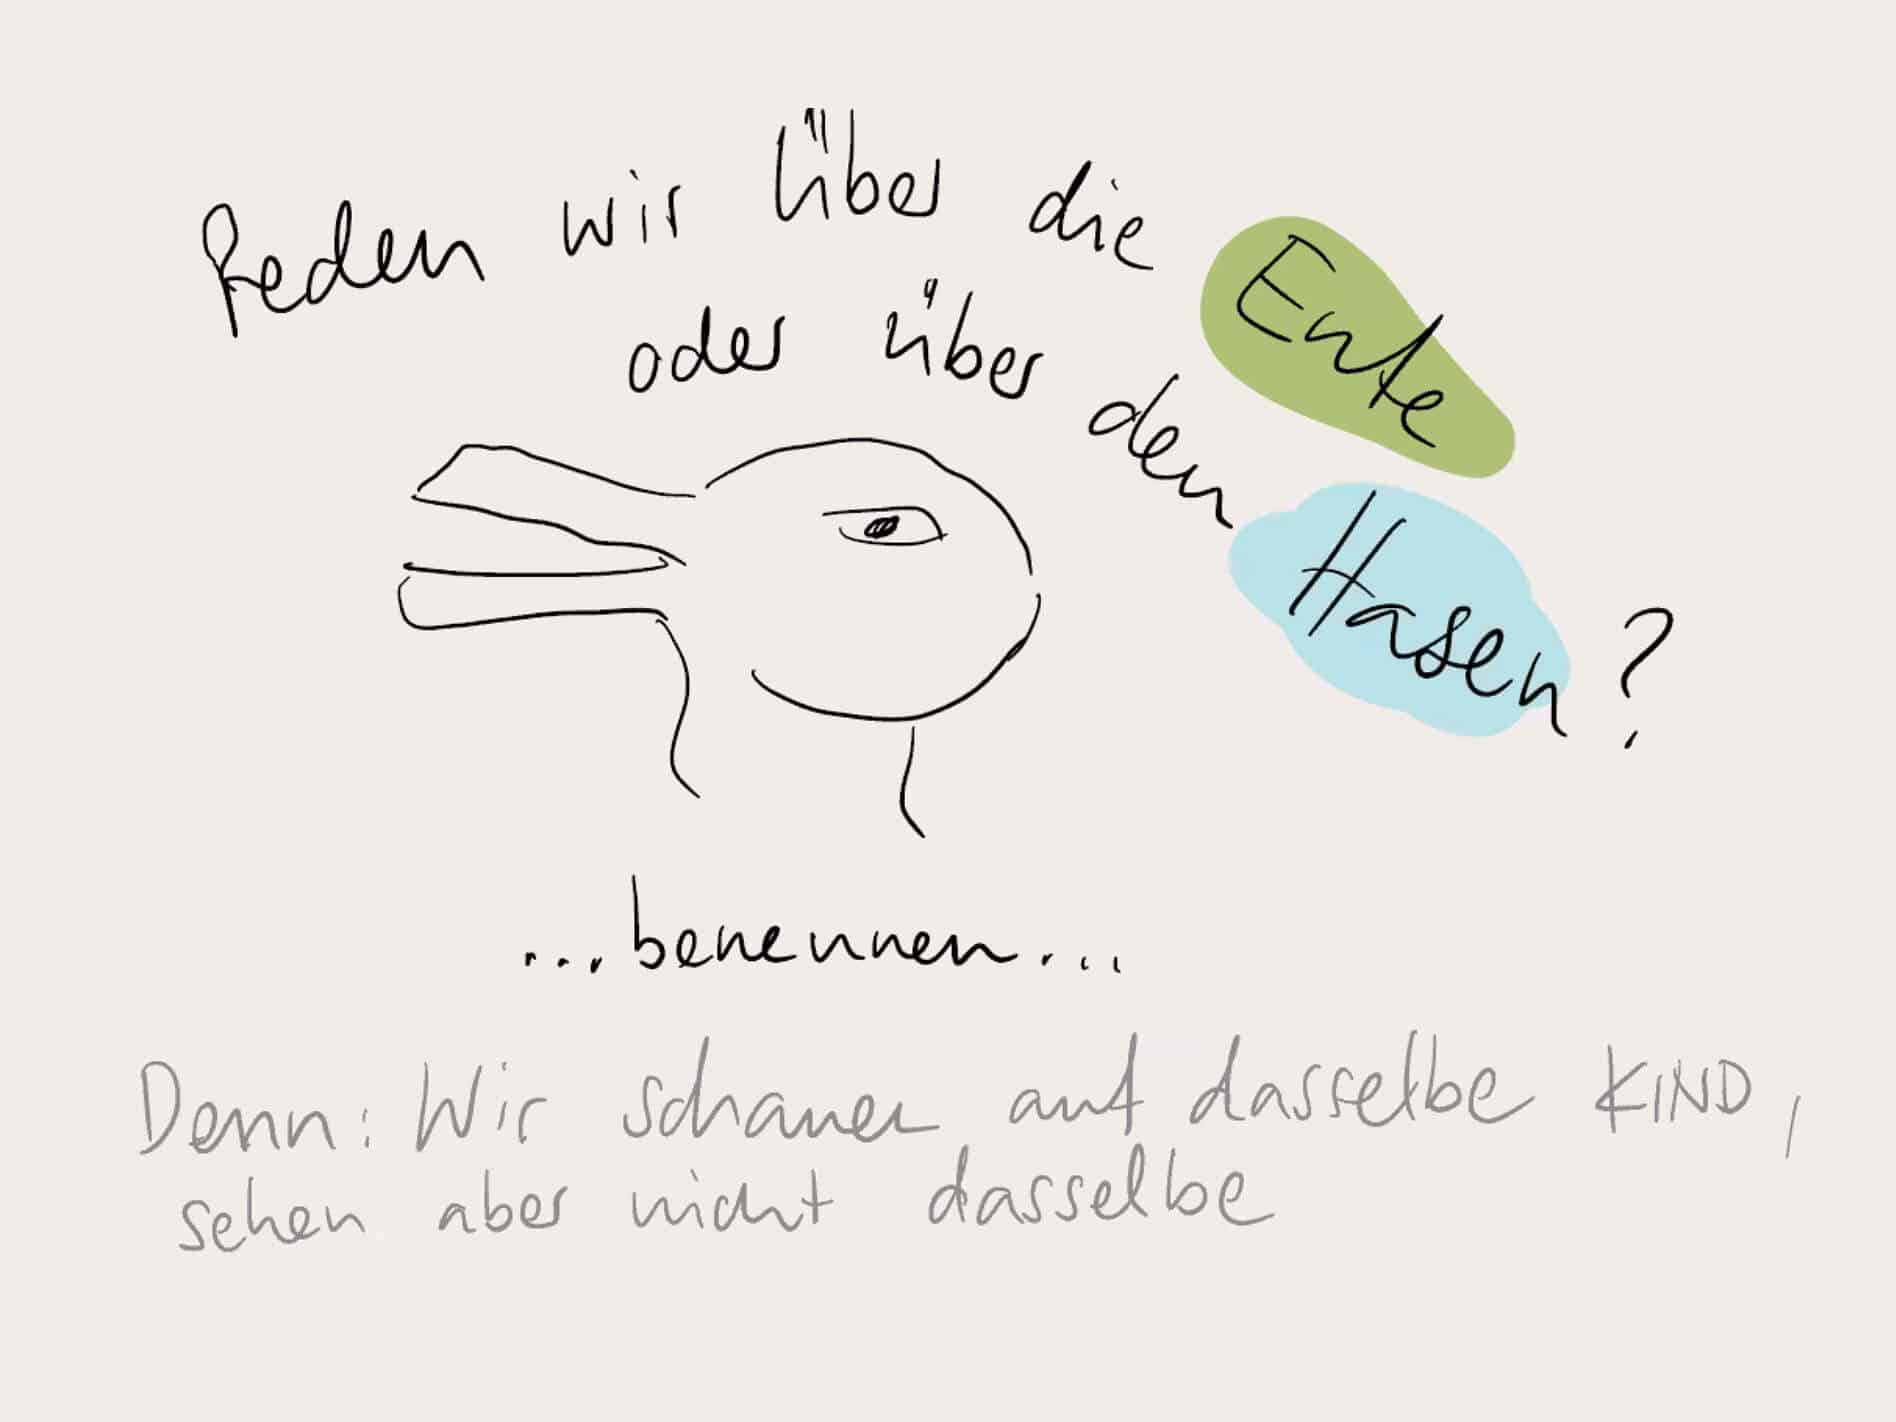 Reden wir über die Ente
oder über den Hasen?
...benennen...
Denn: Wir schauen auf dasselbe KIND,
sehen aber nicht dasselbe